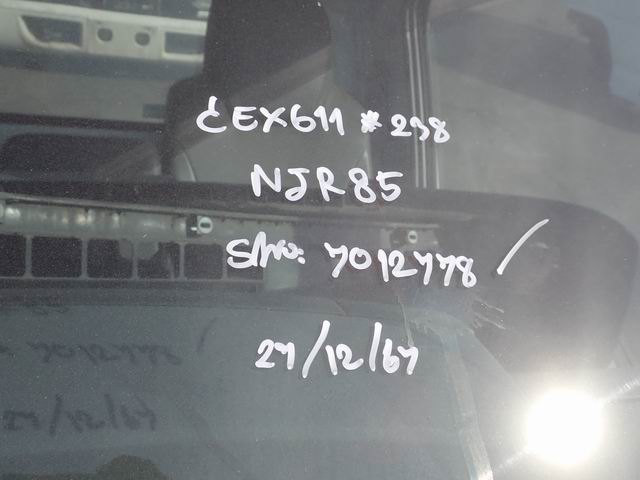 EX611 * 238
NJR85
S/No: 7012778
27/12/67